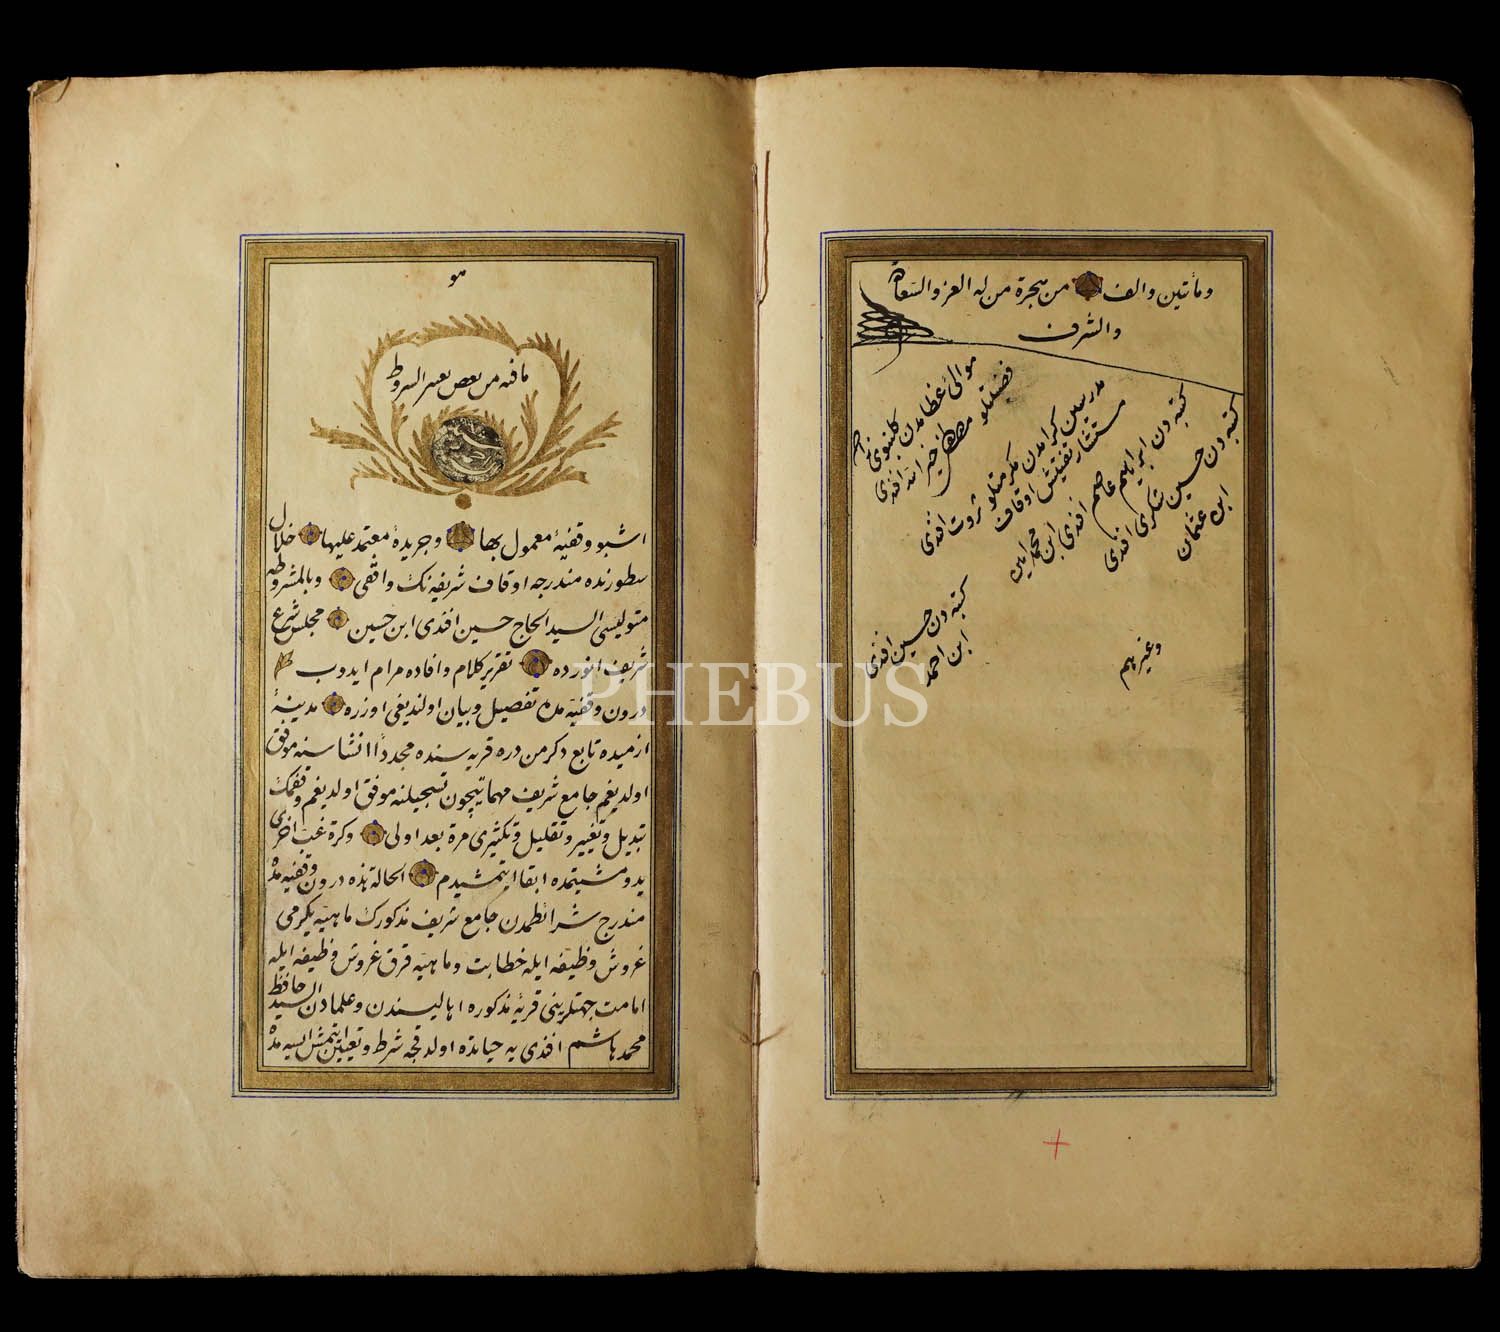 ومأتين والف من هجرة من له العز والسعادة
والشرف
موالئ عظامدن كلنبوى زاده
فضيلتلو مصطفى خير الله افندى
مدرسين كرامدن مكرمتلو ثروت افندى
مستشار تفتيش اوقاف
كتبه دن ابراهيم عاصم افندى ابن محمد امين
كتبه دن حسين شكرى افندى
ابن عثمان
كتبه دن حسين افندى
ابن احمد
وغيرهم
هو
ما فيه من بعض تغيير الشروط
اشبو وقفيۀ معمول بها وجريدۀ معتمد عليها خلال
سطورنده مندرجه اوقاف شريفه نك واقفى وبالمشروطه
متوليسى السيد الحاج حسين افندى ابن حسين مجلس شرع
شريف انورده تقرير كلام وافاده مرام ايدوب
درون وقفيه مده تفصيل وبيان اولنديغى اوزره مدينۀ
ازميده تابع دكرمن دره قريه سنده مجدداً انشاسنه موفق
اولديغم جامع شريف مهماتيچون تسجيلنه موفق اولديغم وقفمك
تبديل وتغيير وتقليل وتكثيرى مرة بعد اولى وكرة غب اخرى
يد ومشيتمده ابقا ايتمشيدم الحالة هذه درون وقفيه مده
مندرج شرائطمدن جامع شريف مذكورك ماهيه يكرمى
غروش وظيفه ايله خطابت وماهيه قرق غروش وظيفه ايله
امامت جهتلرينى قريۀ مذكوره اهاليسندن وعلمادن السيد حافظ
محمد هاشم افندى يه حياتده اولدقجه شرط وتعيين ايتمش ايسه مده
PHEBUS